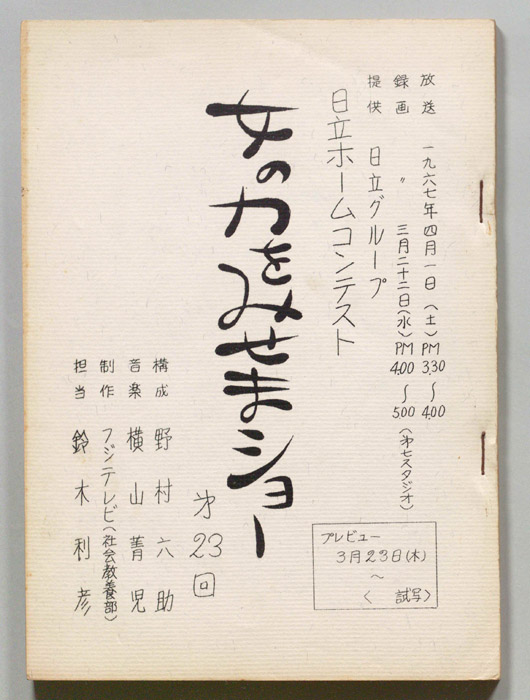 放送 一九六七年四月一日(土)PM 3.30～4.00
録画 〃 三月二十二日(水)PM 4.00～5.00(㐧七スタジオ)
提供 日立グループ
日立ホームコンテスト
女の力をみせまショー
㐧23回
構成 野村六助
音楽 横山菁児
制作 フジテレビ(社会教養部)
担当 鈴木利彦
プレビュー
3月23日(木)
～
< 試写>